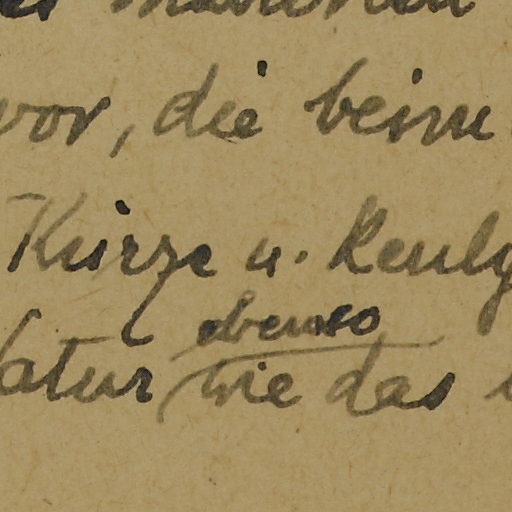 vor, die beim
Kürze u.
ebenso
Natur wie das